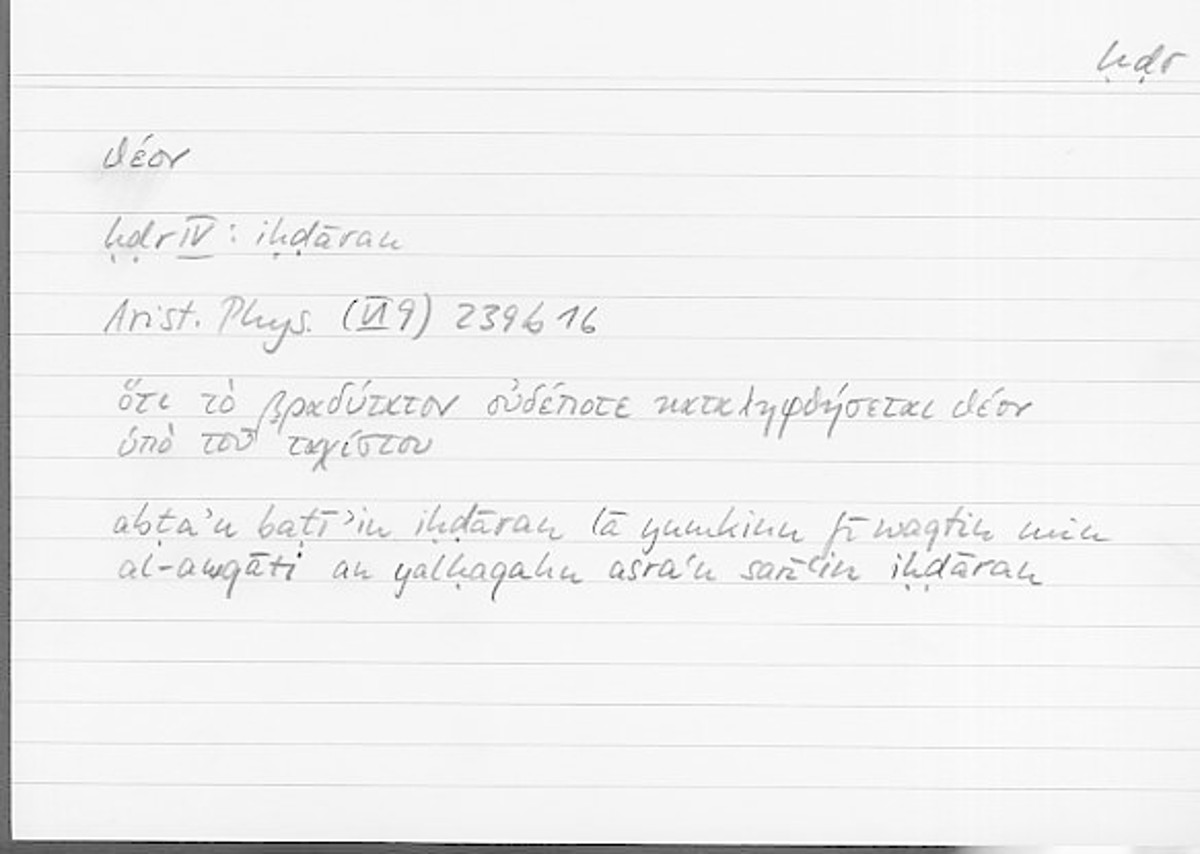 ḥḍr
θέον
ḥḍr IV : iḥḍāran
Arist. Phys. (VI 9) 239b16
ὅτι τὸ βραδύτατον οὐδέποτε καταληφθήσεται θέον
ὑπὸ τοῦ ταχίστου
abṭaʾu baṭīʾin iḥḍāran lā yumkinu fī waqtin min
al-awqāti an yalḥaqahu asraʿu sarīʿin iḥḍāran